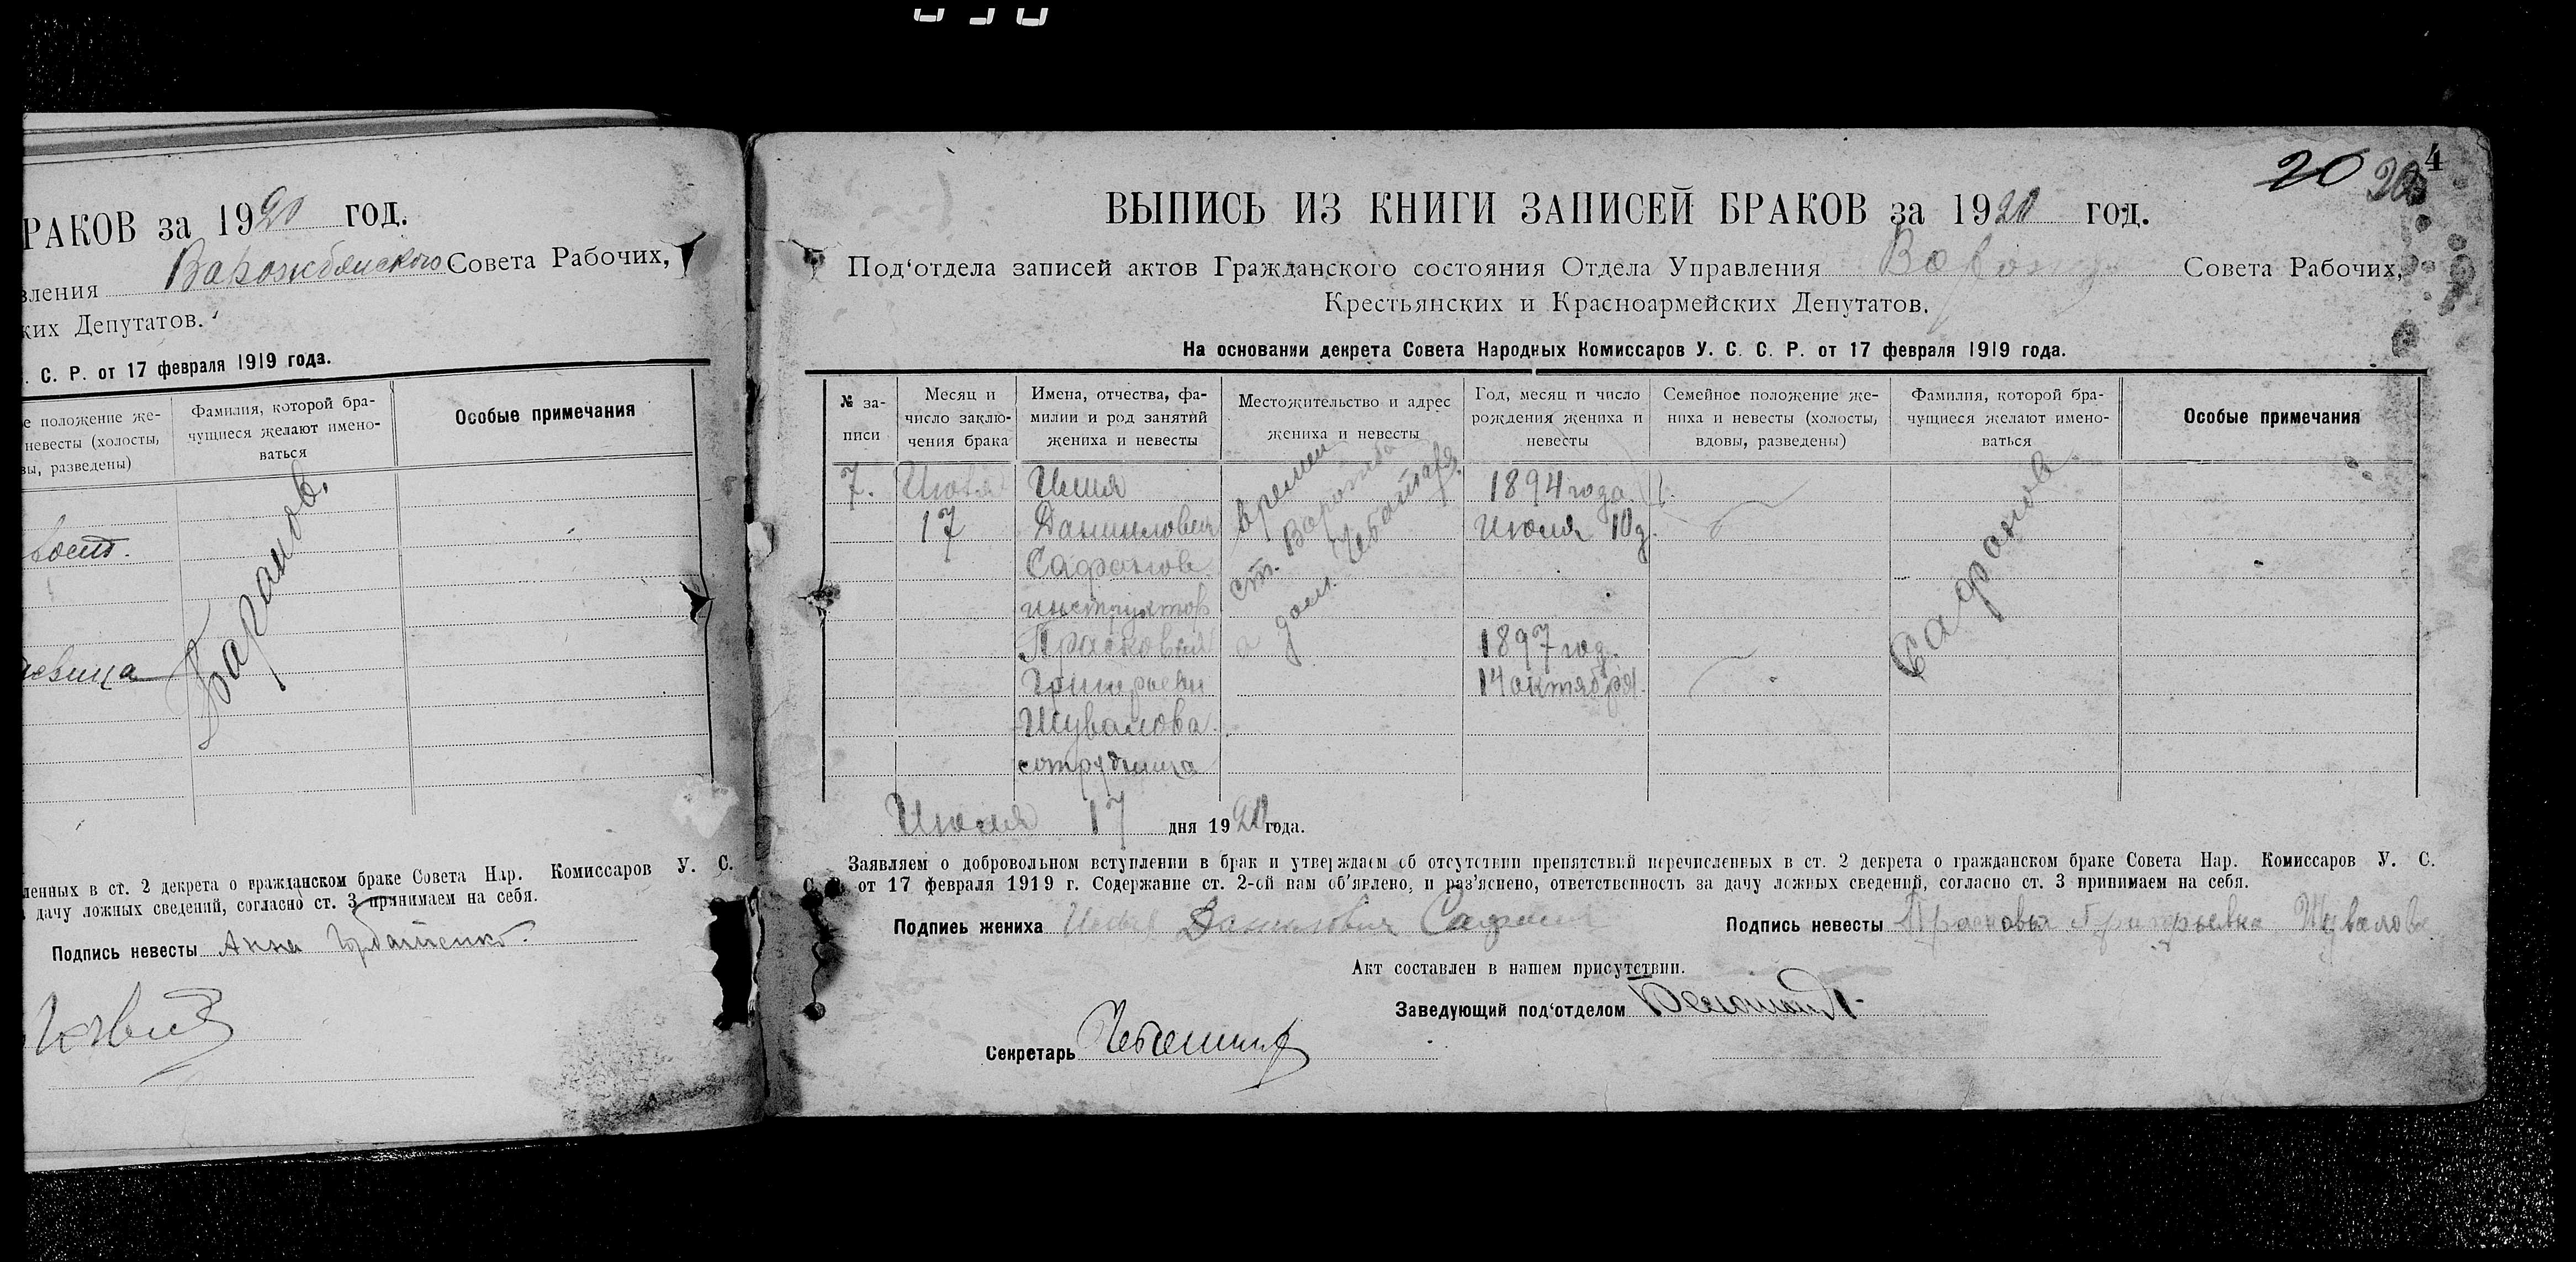 РАКОВ за 1920 год.
вления Ворожбянского Совета Рабочих,
ких Депутатов.
. С. Р. от 17 февраля 1919 года.
е положение же-
невесты (холосты,
вы, разведены)
Фамилия, которой бра-
чущиеся желают имено-
ваться
Особые примечания
Баранов.
ленных в ст. 2 декрета о гражданском браке Совета Нар. Комиссаров У. С.
дачу ложных сведений, согласно ст. 3 принимаем на себя.
Подпись невесты Анна
20 20 4
ВЫПИСЬ ИЗ КНИГИ ЗАПИСЕЙ БРАКОВ за 1920 год.
Под'отдела записей актов Гражданского состояния Отдела Управления Совета Рабочих,
Крестьянских и Красноармейских Депутатов.
На основании декрета Совета Народных Комиссаров У. С. С. Р. от 17 февраля 1919 года.
№ за-
писи
Месяц и
число заклю-
чения брака
Имена, отчества, фа-
милии и род занятий
жениха и невесты
Местожительство и адрес
жениха и невесты
Год, месяц и число
рождения жениха и
невесты
Семейное положение же-
ниха и невесты (холосты,
вдовы, разведены)
Фамилия, которой бра-
чущиеся желают имено-
ваться
Особые примечания
7.
Июля
17
Илия
Данилович
Сафонов
инструктор
Прасковья
Григорьевн
Шувалова
сотрудница
времен
ст. Ворожба
дом. Чеботаря.
1894 года
Июля 10 д.
1897 год.
14 октября.
Сафонов.
Июля 17 дня 1920 года.
Заявляем о добровольном вступлении в брак и утверждаем об отсутствии препятствий перечисленных в ст. 2 декрета о гражданском браке Совета Нар. Комиссаров У. С.
С. Р. от 17 февраля 1919 г. Содержание ст. 2-ой нам об'явлено, и раз'яснено, ответственность за дачу ложных сведений, согласно ст. 3 принимаем на себя.
Подпись жениха Данилович
Подпись невесты Прасковья Григорьевна Шувалова
Акт составлен в нашем присутствии.
Заведующий под'отделом
Секретарь